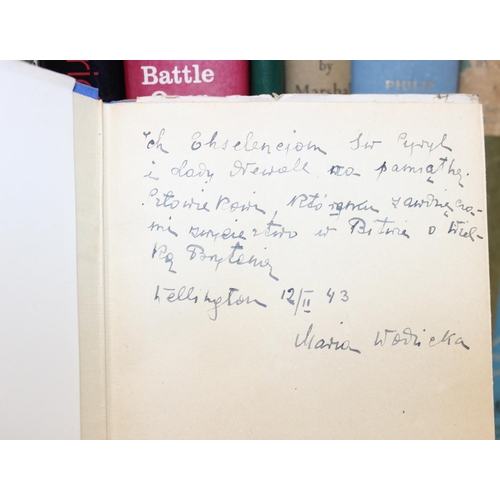 Battle
by
Marshal
PHILIP
Ich Ekselencjom Sir Cyryl
i Lady Newall na pamiątkę.
Człowiekowi, któremu zawdzięcza-
my zwycięstwo w Bitwie o Wiel-
ką Brytanię
Wellington 12/II 43
Maria Wodzicka